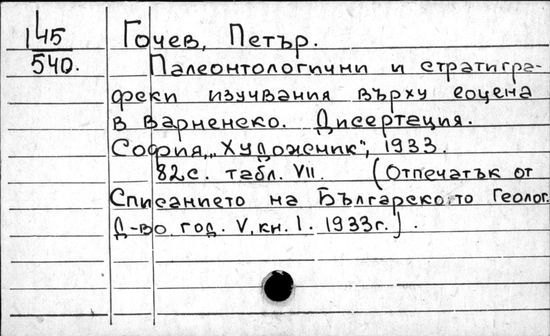 145
540.
Гочев, Петър.
Палеонтологични и стратигра-
фски изучвания върху еоцена
в Варненско. Дисертация.
София, „Художник", 1933.
82с. табл. VII. (Отпечатък от
Списанието на Българско.то Геолог.
Д-во год. V, кн. I. 1933г.).